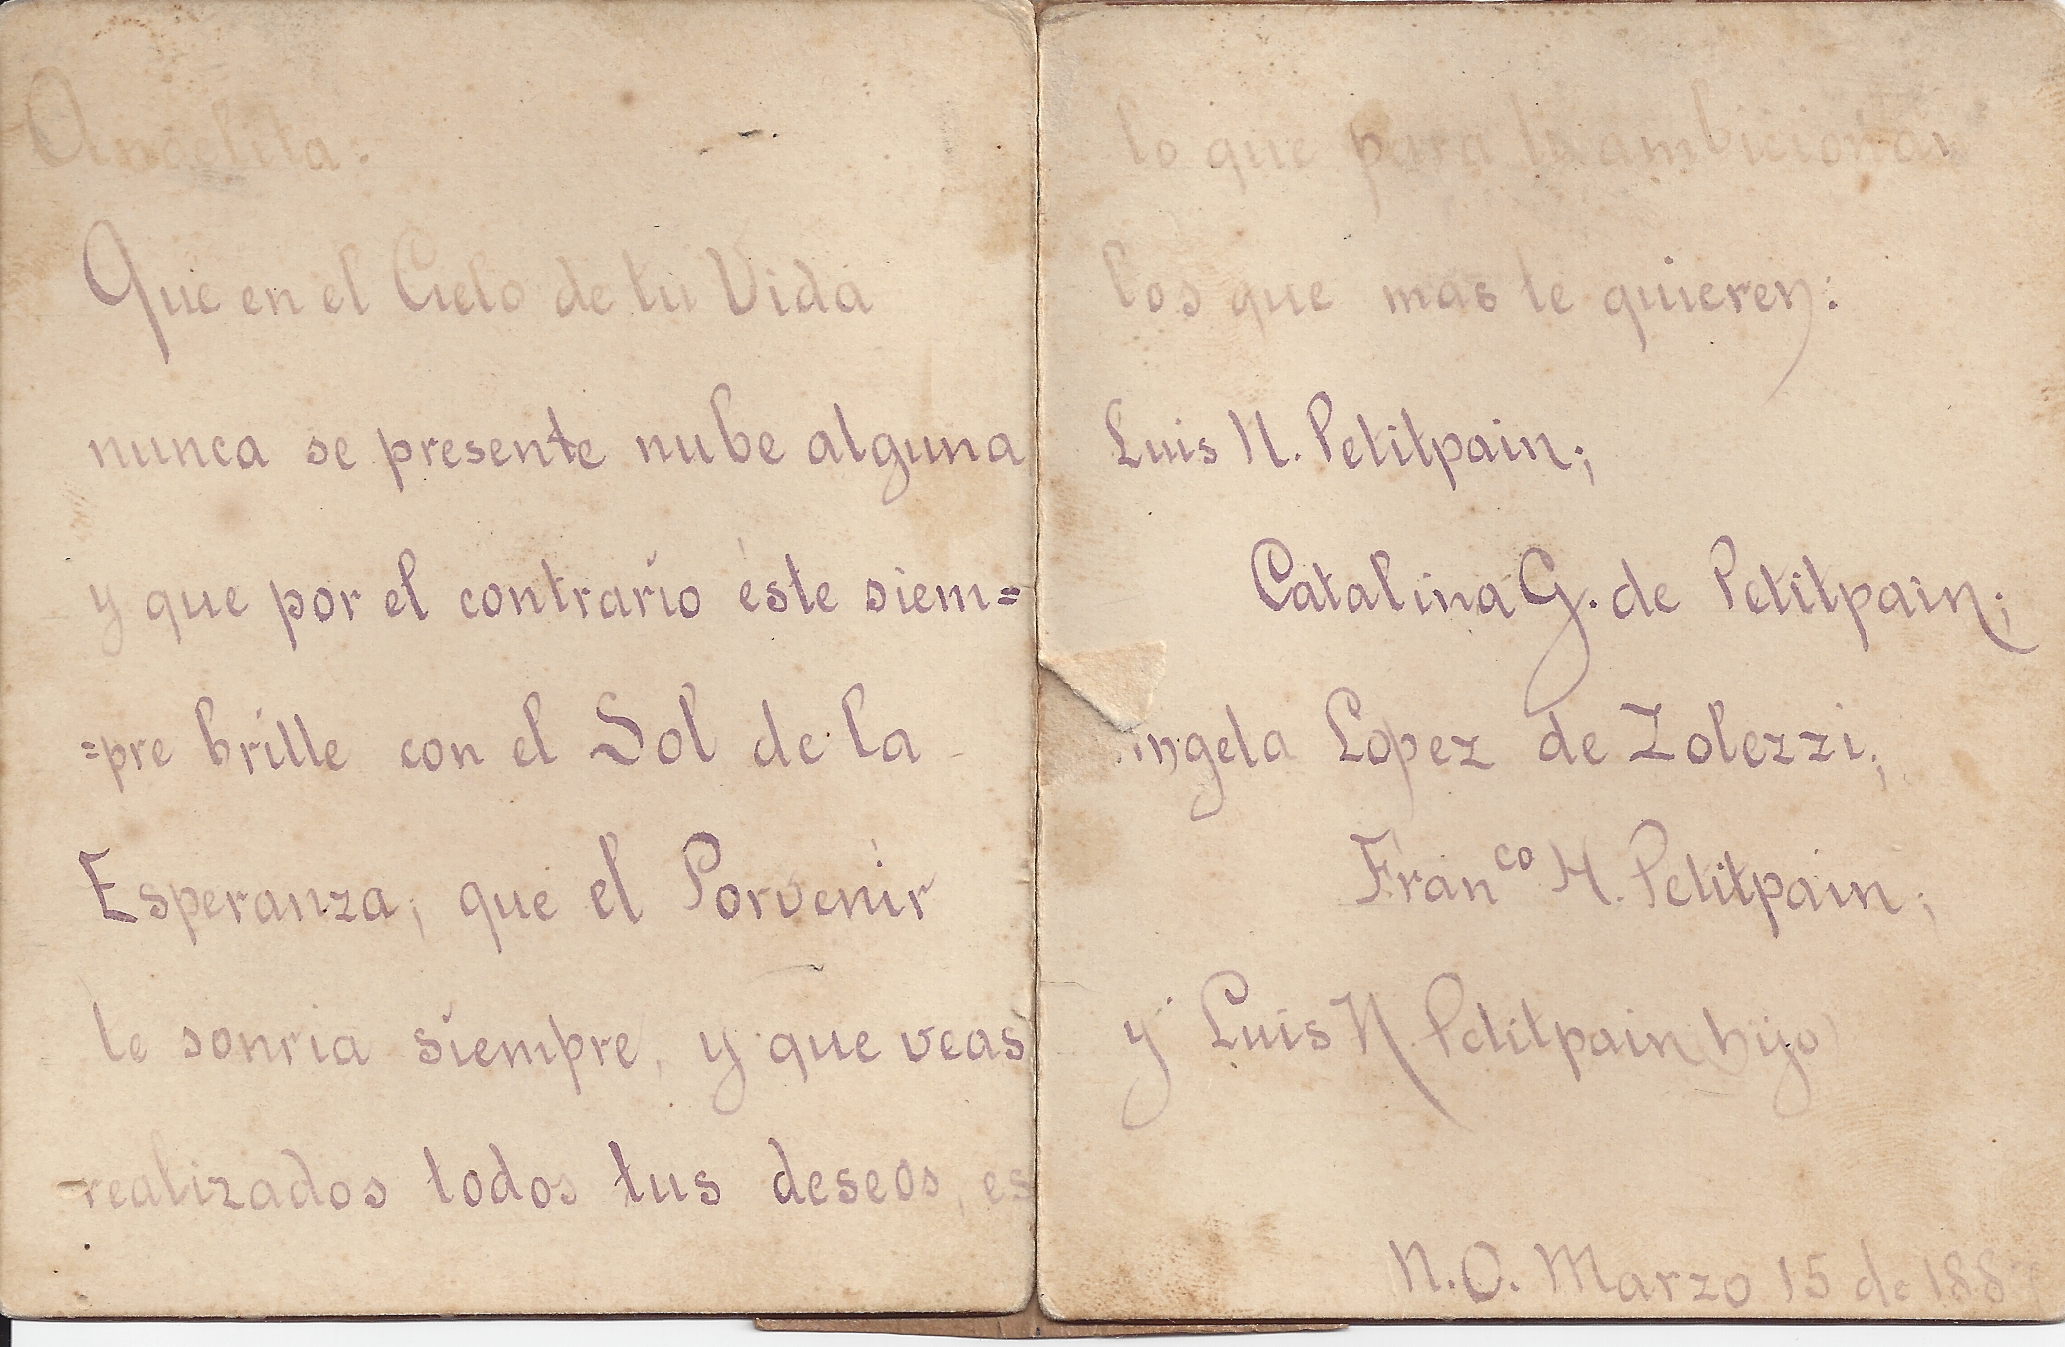 Angelita:
Que en el Cielo de tu Vida
nunca se presente nube alguna
y que por el contrario éste siem=
=pre brille con el Sol de la
Esperanza; que el Porvenir
te sonria siempre, y que veas
realizados todos tus deseos, es
lo que para ti ambicionan
los que mas te quieren:
Luis N. Petitpain;
Catalina G. de Petitpain;
Angela Lopez de Zolezzi;
Franco H. Petitpain;
y Luis N. Petitpain hijo
N.O. Marzo 15 de 188